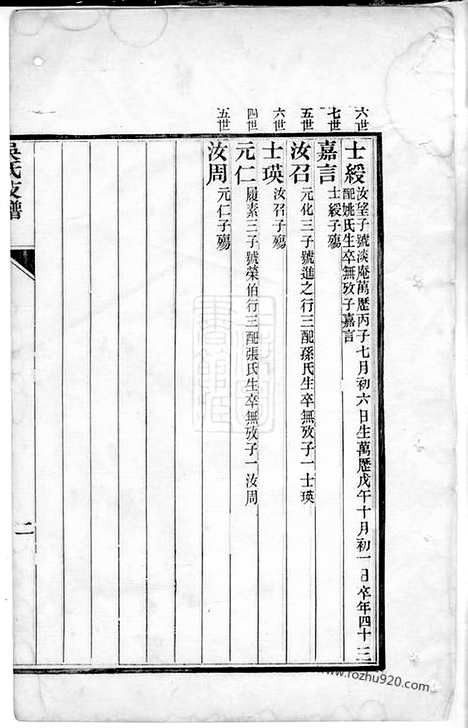 六世
士綬 汝望子號淡庵萬歷丙子七月初六日生萬歷戊午十月初一日卒年四十三
配姚氏生卒無攷子嘉言
七世
嘉言 士綬子殤
五世
汝召 元化三子號進之行三配孫氏生卒無攷子一士瑛
六世
士瑛 汝召子殤
四世
元仁 履素三子號榮伯行三配張氏生卒無攷子一汝周
五世
汝周 元仁子殤
吳氏支譜
二
www.rozhu920.com